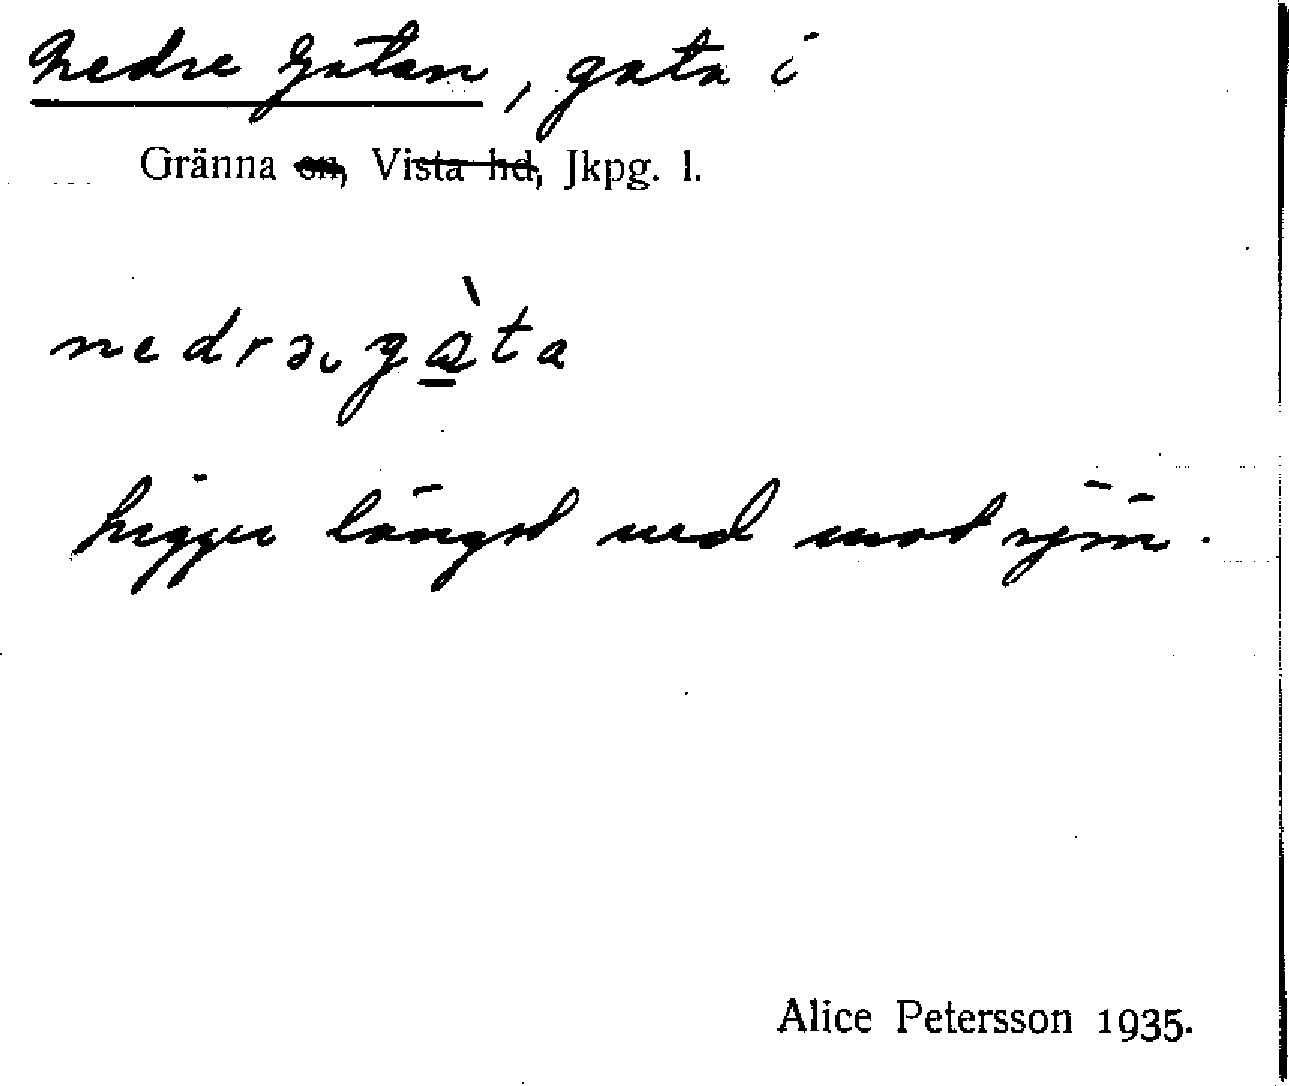 Nedre Gatan, gata i
Gränna sn, Vista hd, Jkpg. l.
nedrə gàta
Ligger längst ned mot sjön.
Alice Petersson 1935.